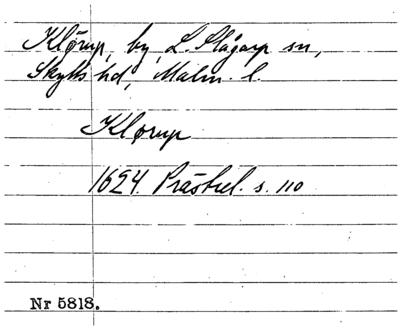 Klörup, by, L. Slågarp sn,
Skytts hd, Malm. l.
Klørup
1624. Prästrel. s. 110
Nr 5818.